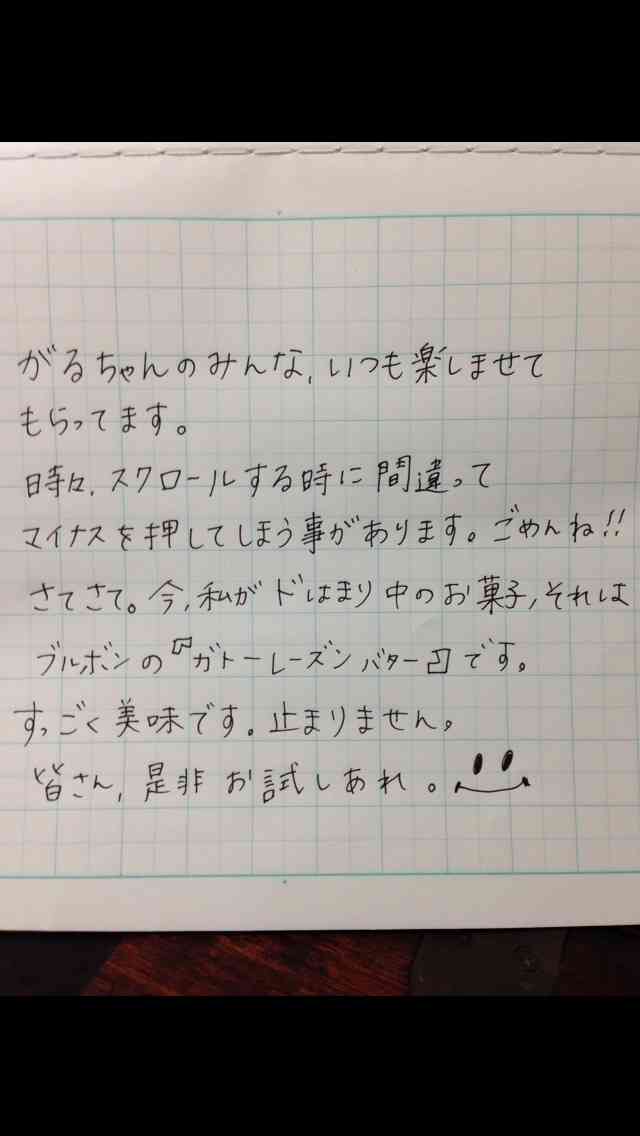 がるちゃんのみんな、いつも楽しませて
もらってます。
時々、スクロールする時に間違って
マイナスを押してしまう事があります。ごめんね!!
さてさて。今、私がドはまり中のお菓子、それは
ブルボンの『ガトーレーズンバター』です。
すっごく美味です。止まりません。
皆さん、是非お試しあれ。